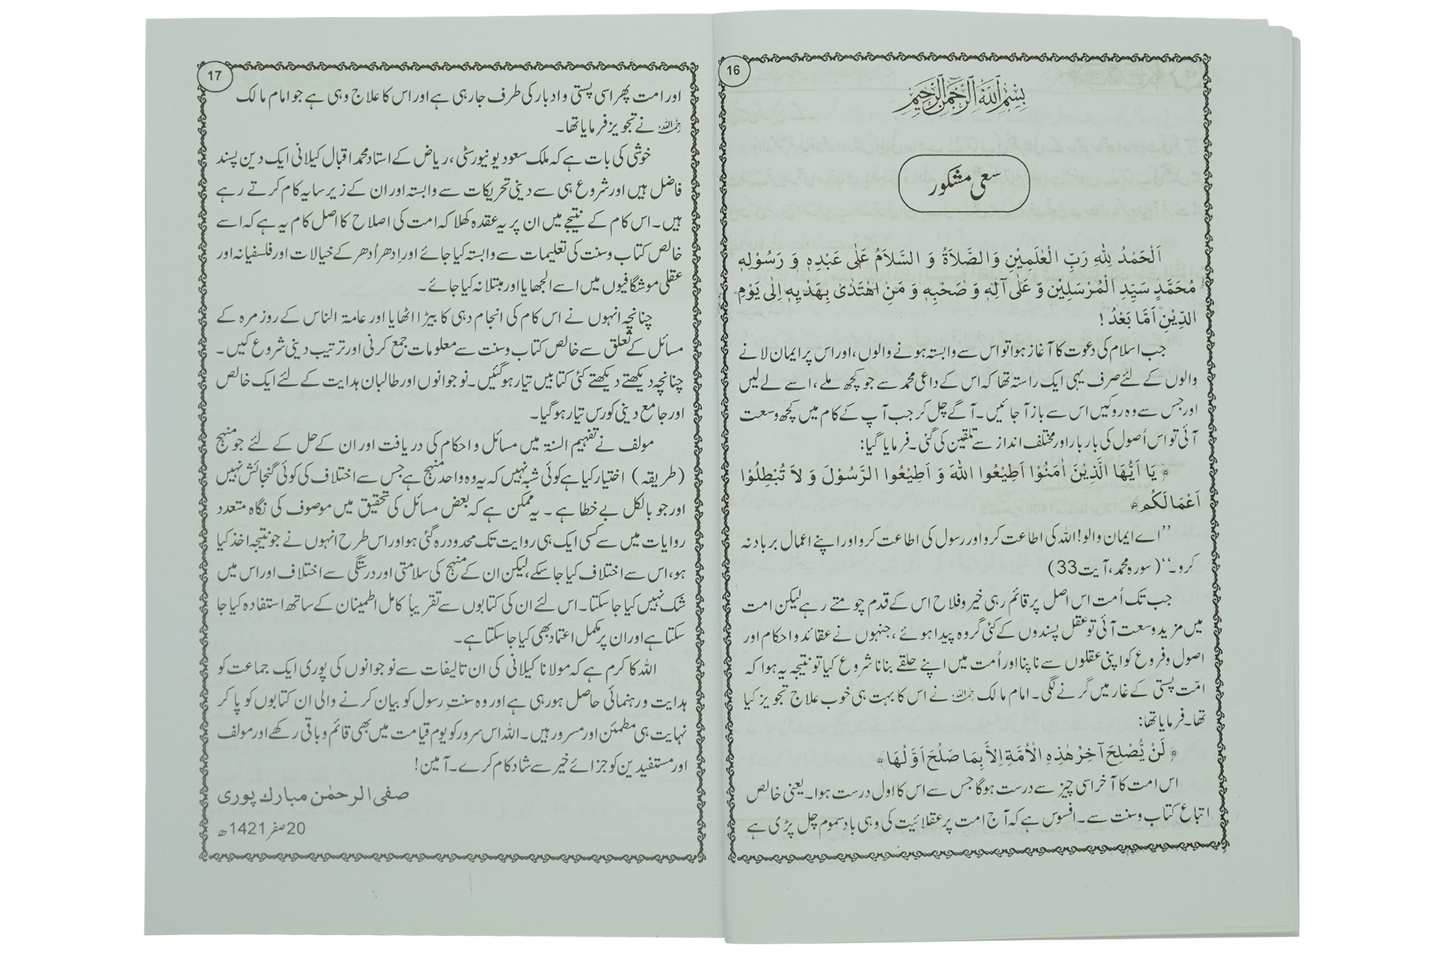 16
بِسْمِ اللّٰهِ الرَّحْمٰنِ الرَّحِيْمِ
سعی مشکور
اَلْحَمْدُ لِلّٰهِ رَبِّ الْعٰلَمِيْنَ وَالصَّلاَةُ وَ السَّلاَمُ عَلٰى عَبْدِهٖ وَ رَسُوْلِهٖ
مُحَمَّدٍ سَيِّدِ الْمُرْسَلِيْنَ وَ عَلٰى آلِهٖ وَ صَحْبِهٖ وَ مَنِ اهْتَدٰى بِهَدْيِهٖ اِلٰى يَوْمِ
الدِّيْنِ اَمَّا بَعْدُ !
جب اسلام کی دعوت کا آغاز ہوا تو اس سے وابستہ ہونے والوں، اور اس پر ایمان لانے
والوں کے لئے صرف یہی ایک راستہ تھا کہ اس کے داعی محمد سے جو کچھ ملے، اسے لے لیں
اور جس سے وہ روکیں اس سے باز آ جائیں۔ آگے چل کر جب آپ کے کام میں کچھ وسعت
آئی تو اس اُصول کی بار بار اور مختلف انداز سے تلقین کی گئی۔ فرمایا گیا:
﴿ يَا اَيُّهَا الَّذِيْنَ اٰمَنُوْا اَطِيْعُوا اللّٰهَ وَ اَطِيْعُوا الرَّسُوْلَ وَ لاَ تُبْطِلُوْا
اَعْمَالَكُمْ﴾
”اے ایمان والو! اللہ کی اطاعت کرو اور رسول کی اطاعت کرو اور اپنے اعمال برباد نہ
کرو۔“ (سورہ محمد، آیت 33)
جب تک اُمت اس اصل پر قائم رہی خیر و فلاح اس کے قدم چومتے رہے لیکن امت
میں مزید وسعت آئی تو عقل پسندوں کے کئی گروہ پیدا ہوئے، جنہوں نے عقائد و احکام اور
اصول و فروع کو اپنی عقلوں سے ناپنا اور اُمت میں اپنے حلقے بنانا شروع کیا تو نتیجہ یہ ہوا کہ
امّت پستی کے غار میں گرنے لگی۔ امام مالک رحمہ اللہ نے اس کا بہت ہی خوب علاج تجویز کیا
تھا۔ فرمایا تھا:
﴿ لَنْ يُّصْلِحَ آخِرَ هٰذِهِ الْاُمَّةِ اِلاَّ بِمَا صَلُحَ اَوَّلُهَا﴾
اس امت کا آخر اسی چیز سے درست ہوگا جس سے اس کا اول درست ہوا۔ یعنی خالص
اتباع کتاب و سنت سے۔ افسوس ہے کہ آج امت پر عقلائیت کی وہی باد سموم چل پڑی ہے
17
اور امت پھر اسی پستی و ادبار کی طرف جارہی ہے اور اس کا علاج وہی ہے جو امام مالک
رحمہ اللہ نے تجویز فرمایا تھا۔
خوشی کی بات ہے کہ ملک سعود یونیورسٹی، ریاض کے استاد محمد اقبال کیلانی ایک دین پسند
فاضل ہیں اور شروع ہی سے دینی تحریکات سے وابستہ اور ان کے زیر سایہ کام کرتے رہے
ہیں۔ اس کام کے نتیجے میں ان پر یہ عقدہ کھلا کہ امت کی اصلاح کا اصل کام یہ ہے کہ اسے
خالص کتاب و سنت کی تعلیمات سے وابستہ کیا جائے اور اِدھر اُدھر کے خیالات اور فلسفیانہ اور
عقلی موشگافیوں میں اسے الجھایا اور مبتلا نہ کیا جائے۔
چنانچہ انہوں نے اس کام کی انجام دہی کا بیڑا اٹھایا اور عامۃ الناس کے روز مرہ کے
مسائل کے تعلق سے خالص کتاب و سنت سے معلومات جمع کرنی اور ترتیب دینی شروع کیں۔
چنانچہ دیکھتے دیکھتے کئی کتابیں تیار ہوگئیں۔ نوجوانوں اور طالبان ہدایت کے لئے ایک خالص
اور جامع دینی کورس تیار ہو گیا۔
مولف نے تفہیم السنۃ میں مسائل و احکام کی دریافت اور ان کے حل کے لئے جو منہج
(طریقہ) اختیار کیا ہے کوئی شبہ نہیں کہ یہ وہ واحد منہج ہے جس سے اختلاف کی کوئی گنجائش نہیں
اور جو بالکل بے خطا ہے۔ یہ ممکن ہے کہ بعض مسائل کی تحقیق میں موصوف کی نگاہ متعدد
روایات میں سے کسی ایک ہی روایت تک محدود رہ گئی ہو اور اس طرح انہوں نے جو نتیجہ اخذ کیا
ہو، اس سے اختلاف کیا جا سکے، لیکن ان کے منہج کی سلامتی اور درستگی سے اختلاف اور اس میں
شک نہیں کیا جا سکتا۔ اس لئے ان کی کتابوں سے تقریباً کامل اطمینان کے ساتھ استفادہ کیا جا
سکتا ہے اور ان پر مکمل اعتماد بھی کیا جا سکتا ہے۔
اللہ کا کرم ہے کہ مولانا کیلانی کی ان تالیفات سے نوجوانوں کی پوری ایک جماعت کو
ہدایت و رہنمائی حاصل ہو رہی ہے اور وہ سنت رسول کو بیان کرنے والی ان کتابوں کو پا کر
نہایت ہی مطمئن اور مسرور ہیں۔ اللہ اس سرور کو یوم قیامت میں بھی قائم و باقی رکھے اور مولف
اور مستفیدین کو جزائے خیر سے شاد کام کرے۔ آمین!
صفی الرحمٰن مبارک پوری
20 صفر 1421ھ